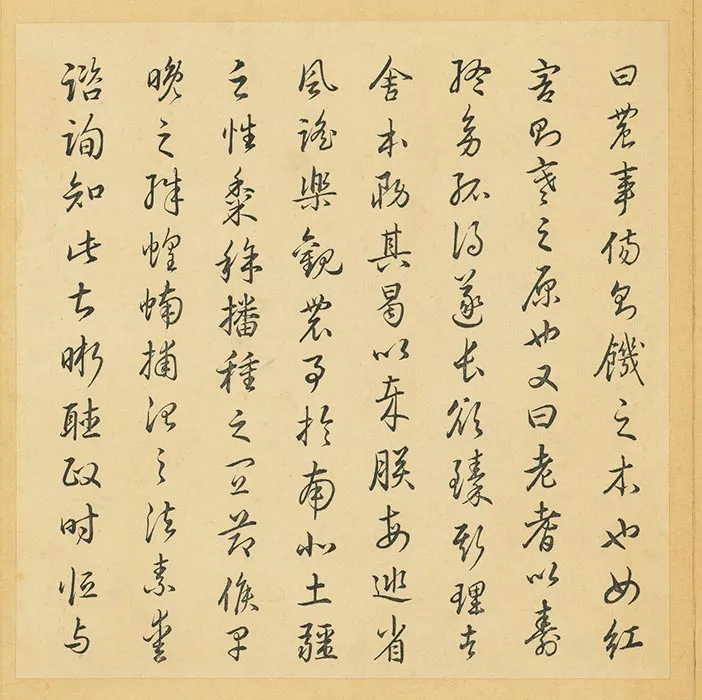 曰農事傷則饑之本也女紅
害則寒之原也又曰老耆以壽
終幼孤得遂長欲臻斯理者
舍本務其曷以哉朕每巡省
風謠樂觀農事於南北土疆
之性黍稌播種之宜節候早
晚之殊蝗蝻捕治之法素愛
諮詢知此甚晰聽政時恆與